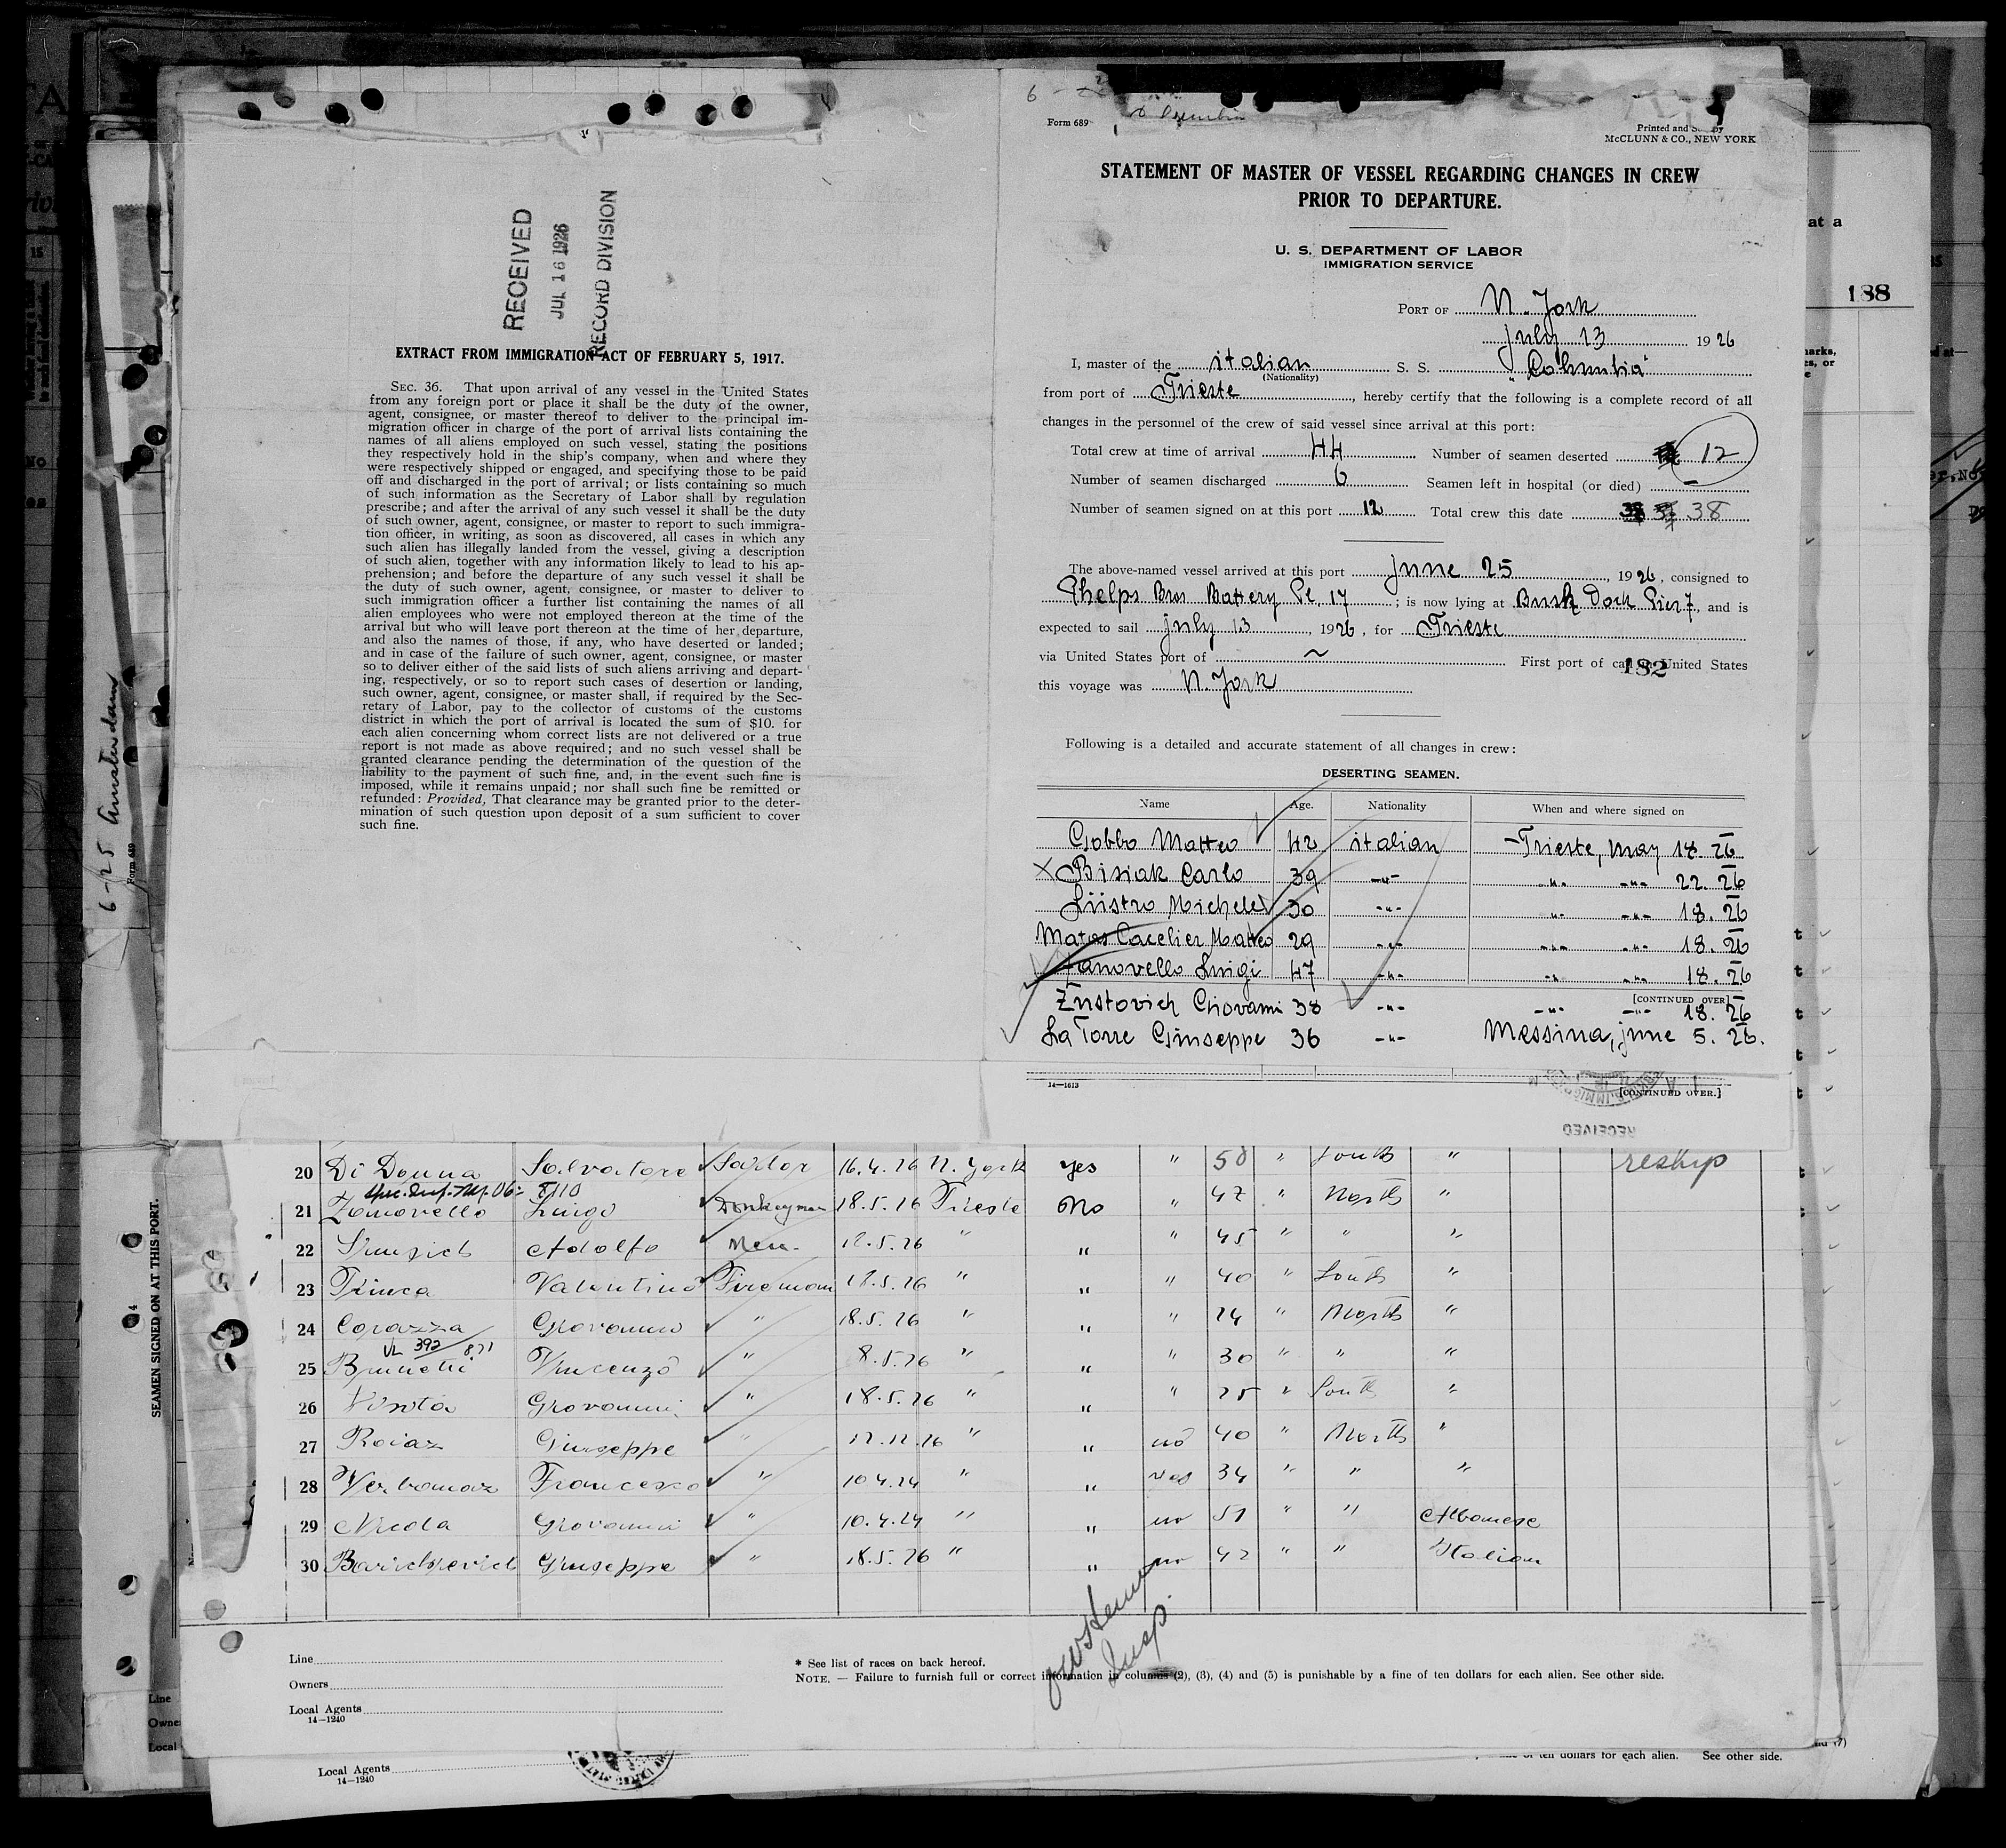 RECEIVED
JUL 16 1926
RECORD DIVISION
EXTRACT FROM IMMIGRATION ACT OF FEBRUARY 5, 1917.
SEC. 36. That upon arrival of any vessel in the United States
from any foreign port or place it shall be the duty of the owner,
agent, consignee, or master thereof to deliver to the principal im-
migration officer in charge of the port of arrival lists containing the
names of all aliens employed on such vessel, stating the positions
they respectively hold in the ship's company, when and where they
were respectively shipped or engaged, and specifying those to be paid
off and discharged in the port of arrival; or lists containing so much
of such information as the Secretary of Labor shall by regulation
prescribe; and after the arrival of any such vessel it shall be the duty
of such owner, agent, consignee, or master to report to such immigra-
tion officer, in writing, as soon as discovered, all cases in which any
such alien has illegally landed from the vessel, giving a description
of such alien, together with any information likely to lead to his ap-
prehension; and before the departure of any such vessel it shall be
the duty of such owner, agent, consignee, or master to deliver to
such immigration officer a further list containing the names of all
alien employees who were not employed thereon at the time of the
arrival but who will leave port thereon at the time of her departure,
and also the names of those, if any, who have deserted or landed;
and in case of the failure of such owner, agent, consignee, or master
so to deliver either of the said lists of such aliens arriving and depart-
ing, respectively, or so to report such cases of desertion or landing,
such owner, agent, consignee, or master shall, if required by the Sec-
retary of Labor, pay to the collector of customs of the customs
district in which the port of arrival is located the sum of $10. for
each alien concerning whom correct lists are not delivered or a true
report is not made as above required; and no such vessel shall be
granted clearance pending the determination of the question of the
liability to the payment of such fine, and, in the event such fine is
imposed, while it remains unpaid; nor shall such fine be remitted or
refunded: Provided, That clearance may be granted prior to the deter-
mination of such question upon deposit of a sum sufficient to cover
such fine.
Form 689
Printed and
McCLUNN & CO., NEW YORK
STATEMENT OF MASTER OF VESSEL REGARDING CHANGES IN CREW
PRIOR TO DEPARTURE.
U. S. DEPARTMENT OF LABOR
IMMIGRATION SERVICE
PORT OF N. York
July 13 1926
I, master of the italian S. S. "Columbia"
(Nationality)
from port of Trieste, hereby certify that the following is a complete record of all
changes in the personnel of the crew of said vessel since arrival at this port:
Total crew at time of arrival 44 Number of seamen deserted 12
Number of seamen discharged 6 Seamen left in hospital (or died) -
Number of seamen signed on at this port 12 Total crew this date 38
The above-named vessel arrived at this port June 25, 1926, consigned to
Phelps Bros Battery Pl. 17; is now lying at Bush Dock Pier 7, and is
expected to sail July 13, 1926, for Trieste
via United States port of ~ First port of call United States
182
this voyage was N. York
Following is a detailed and accurate statement of all changes in crew:
DESERTING SEAMEN.
Name Age. Nationality When and where signed on
Gobbo Matteo 42 italian Trieste, May 18. 26
X Bisiak Carlo 39 -"- -"- -"- 22. 26
Michele 30 -"- -"- -"- 18. 26
Matteo 29 -"- -"- -"- 18. 26
Zanovello Luigi 47 -"- -"- -"- 18. 26
[CONTINUED OVER]
Zustovich Giovanni 38 -"- -"- -"- 18. 26
La Torre Giuseppe 36 -"- Messina, june 5. 26.
14—1613
[CONTINUED OVER.]
RECEIVED
188
6-25 Amsterdam
Form 689
SEAMEN SIGNED ON AT THIS PORT.
20 Di Donna Salvatore Sailor 16.4.26 N. York Yes " 50 " South " reship
21 Zanovello Luigi Donkeyman 18.5.26 Trieste No " 47 " North "
22 Adolfo 18.5.26 " " " 45 " " "
23 Valentino Fireman 18.5.26 " " " 40 " South "
24 Corazza Giovanni " 18.5.26 " " " 24 " North "
25 Brunetti Vincenzo " 8.5.26 " " " 30 " " "
26 Giovanni " 18.5.26 " " " 25 " South "
27 Roiaz Giuseppe " 12.12.26 " " no 40 " North "
28 Francesco " 10.4.24 " " yes 34 " " "
29 Nicola Giovanni " 10.4.24 " " no 51 " " Albanese
30 Giuseppe " 18.5.26 " " no 42 " " Italian
Insp.
Line
Owners
Local Agents
14—1240
* See list of races on back hereof.
NOTE. — Failure to furnish full or correct information in columns (2), (3), (4) and (5) is punishable by a fine of ten dollars for each alien. See other side.
Local Agents
14—1240
ten dollars for each alien. See other side.